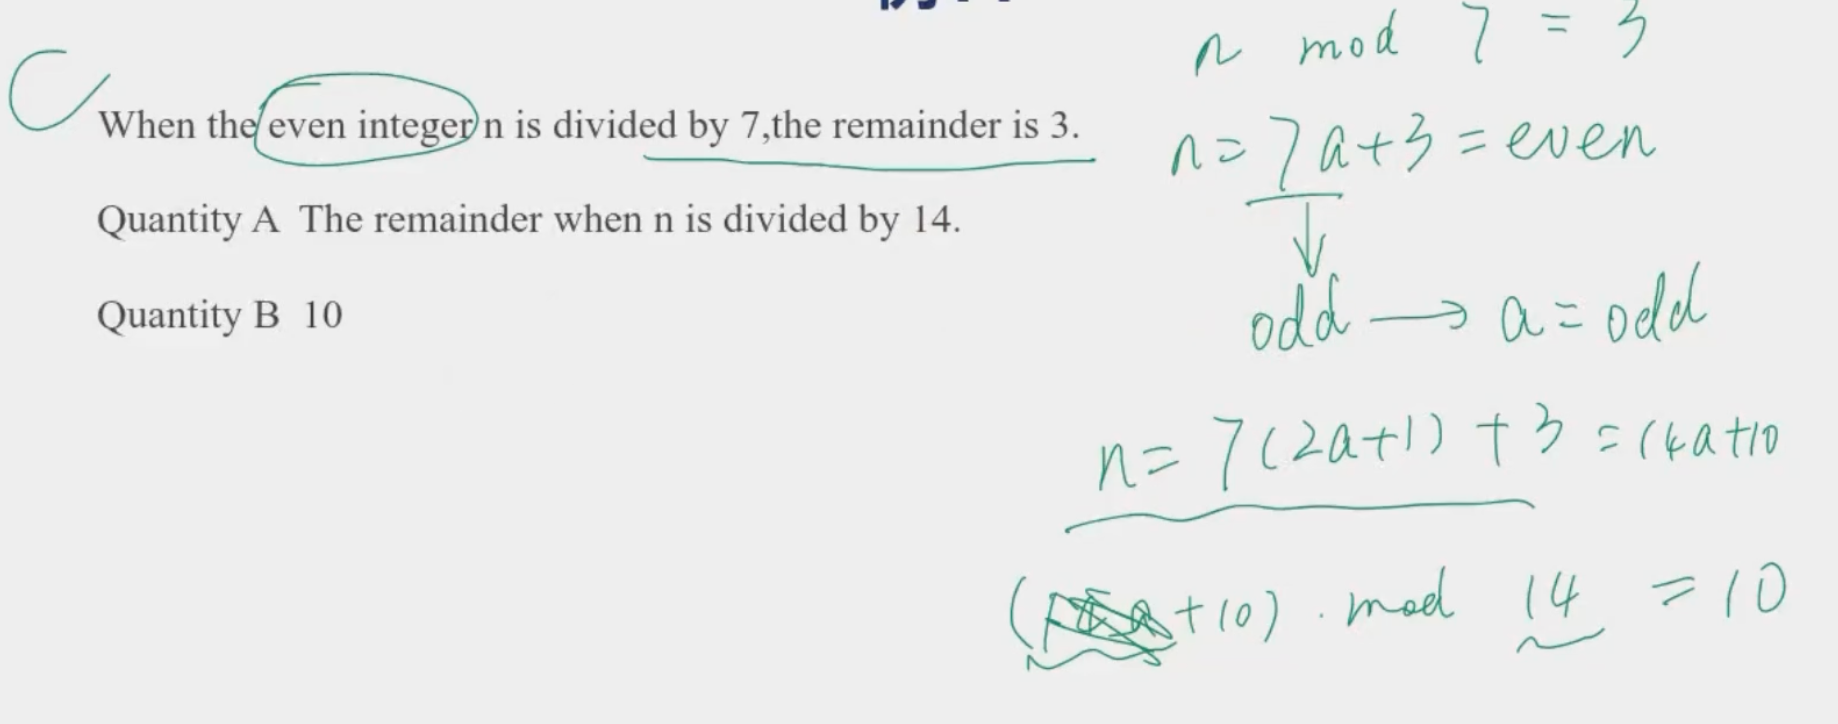 C
When the even integer n is divided by 7,the remainder is 3.
Quantity A The remainder when n is divided by 14.
Quantity B 10
n mod 7 = 3
n = 7a+3 = even
odd → a = odd
n = 7(2a+1) + 3 = 14a+10
( +10) . mod 14 = 10